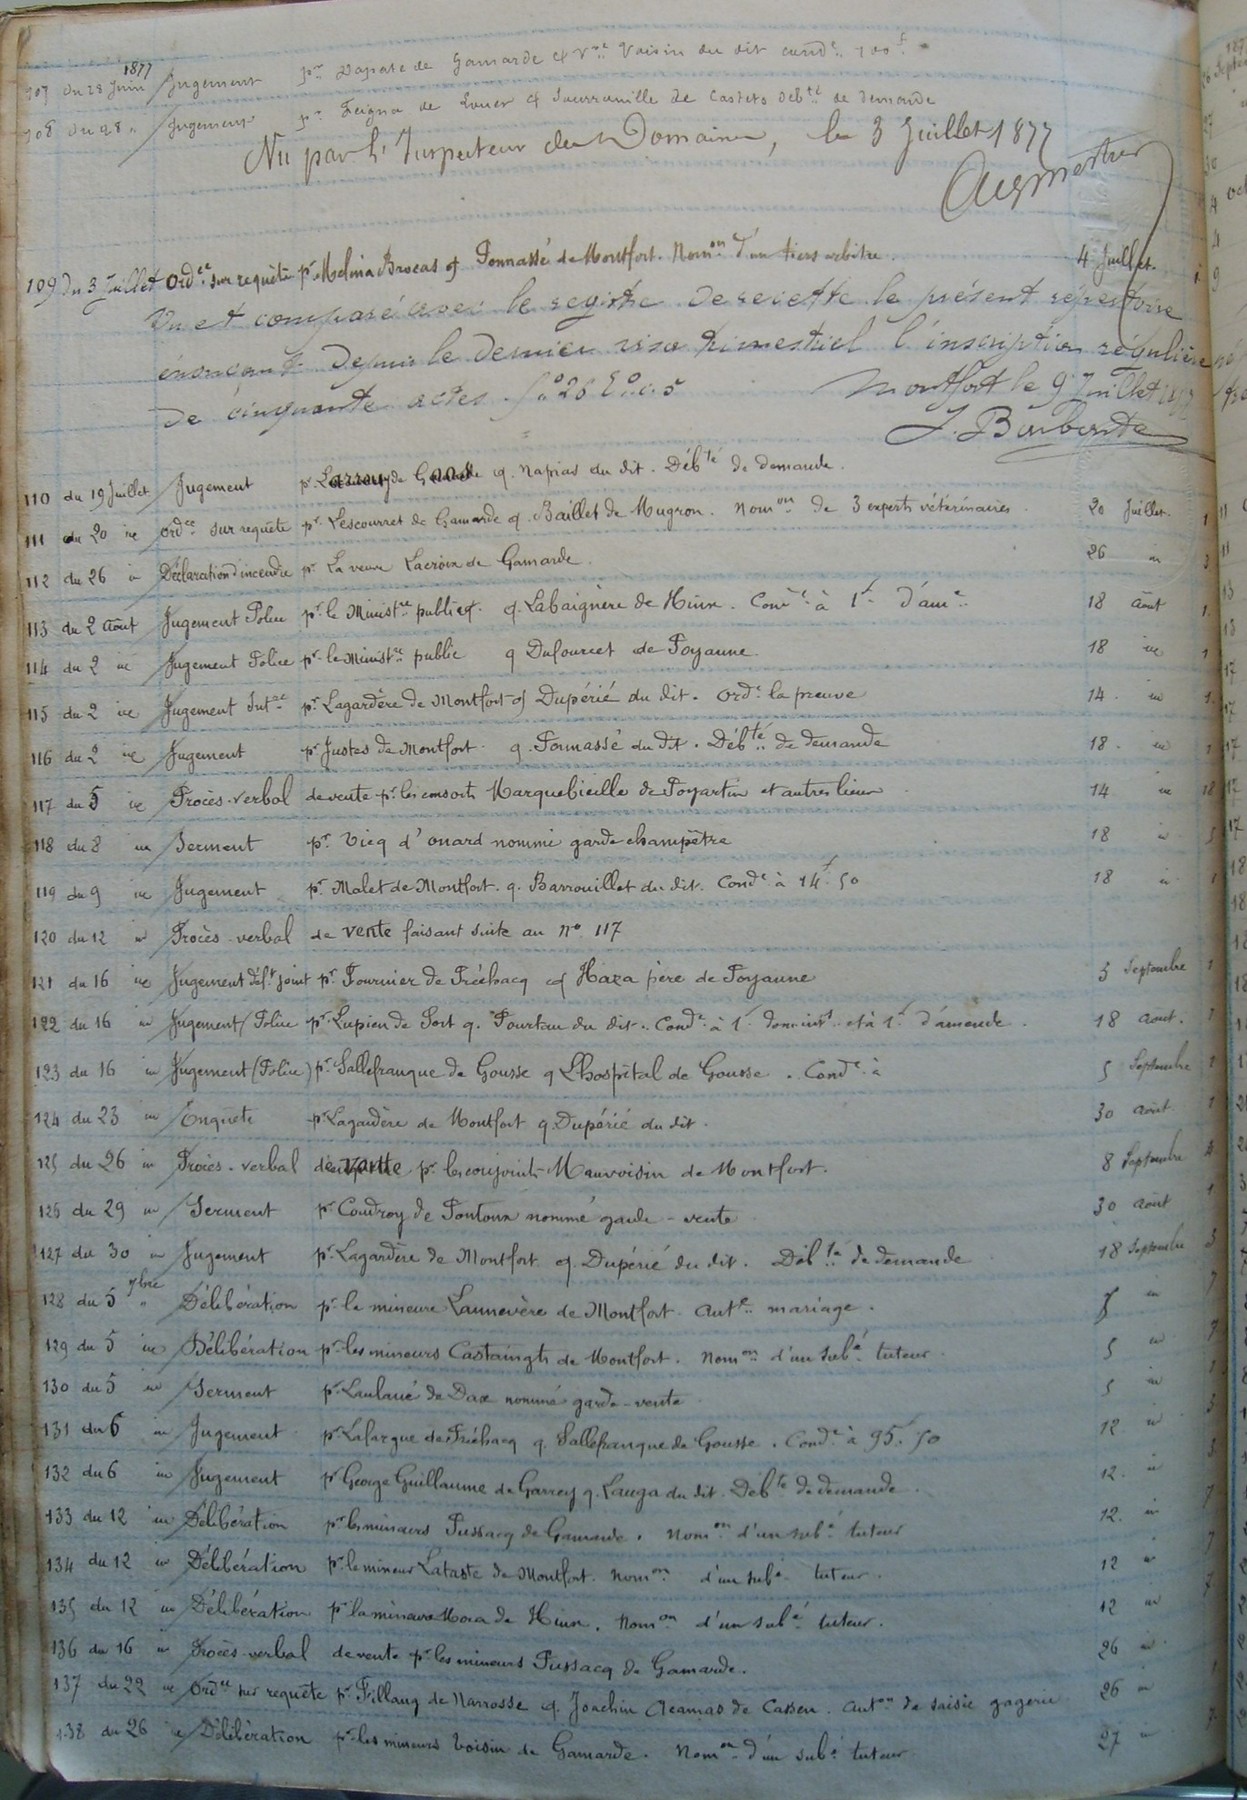 107 du 28 Juin 1877 Jugement pr Dapate de Gamarde cf Vve Voisin du dit cond. 100f
108 du 28 " Jugement pr Feigna de Louer cf Darrouille de Castets Débté de demande
Vu par l'Inspecteur des Domaines, le 3 Juillet 1877
109 Du 3 Juillet Ordce sur requête pr Melina Brocas cf Ponnassé de Montfort. Nomon d'un tiers arbitre. 4 Juillet. 1
Vu et comparé avec le registre de recette le présent répertoire
énonçant depuis le dernier visa trimestriel l'inscription régulière
de cinquante actes. fo 26 Montfort le 9 Juillet 1877
J. Barbente
110 du 19 Juillet Jugement pr de Gamarde cf. Napias du dit. Débté de demande.
111 du 20 ie Ordce sur requête pr Lescourret de Gamarde cf. Baillet de Mugron. Nomon de 3 experts vétérinaires. 20 Juillet. 1
112 du 26 ie Déclaration d'incendie pr La veuve Lacroix de Gamarde. 26 ie 3
113 du 2 Août Jugement Police pr le Ministre public cf. cf Labaignère de Hinx. Conde à 1f d'ame. 18 Août 1
114 du 2 ie Jugement Police pr le Ministre public cf Dufourcet de Poyanne. 18 ie 1
115 du 2 ie Jugement Intre pr Lagardère de Montfort cf Dupérié du dit. Orde la preuve 14 ie 1
116 du 2 ie Jugement pr Justes de Montfort. cf. Ponnassé du dit. Débté de demande 18. ie 1
117 du 5 ie Procès-verbal de vente pr les consorts Marquebieille de Poyartin et autres lieux 14 ie 18
118 du 8 ie Serment pr Vicq d'onard nommé garde champêtre 18 ie 5
119 du 9 ie Jugement pr Malet de Montfort. cf. Barrouillet du dit. Conde à 14f.50 18 ie 1
120 du 12 ie Procès-verbal de vente faisant suite au No 117
121 du 16 ie Jugement déft joint pr Fournier de Préchacq cf Haza père de Poyanne 5 Septembre 1
122 du 16 ie Jugement (Police pr Lupien de Sort cf. Tourtau du dit. Conde à 1f domints et à 1f d'amende. 18 Août. 1
123 du 16 ie Jugement (Police) pr Sallefranque de Gousse cf Lhospital de Gousse. Conde à 5 Septembre 1
124 du 23 ie Enquête pr Lagardère de Montfort cf Dupérié du dit. 30 août 1
125 du 26 ie Procès-verbal de vente pr les conjoints Mauvoisin de Montfort. 8 Septembre 4
126 du 29 ie Serment pr Coudroy de Pontonx nommé garde-vente 30 août 1
127 du 30 ie Jugement pr Lagardère de Montfort cf Dupérié du dit. Débté de demande 18 Septembre 3
128 du 5 7bre Délibération pr la mineure Lannevère de Montfort. Autn mariage. 5 ie 7
129 du 5 ie Délibération pr les mineurs Castaingts de Montfort. Nomon d'un subé tuteur. 5 ie 7
130 du 5 ie Serment pr Laulané de Dax nommé garde-vente 5 ie
131 du 6 ie Jugement pr Lafargue de Préchacq cf. Sallefranque de Gousse. Conde à 95f.50 12 ie 3
132 du 6 ie Jugement pr George Guillaume de Garrey cf. Lauga du dit. Débté de demande. 12. ie 3
133 du 12 ie Délibération pr les mineurs Pussacq de Gamarde. Nomon d'un subé tuteur 12. ie 7
134 du 12 ie Délibération pr le mineur Lataste de Montfort. Nomon d'un subé tuteur. 12 ie 7
135 du 12 ie Délibération pr la mineure Mora de Hinx. Nomon d'un subé tuteur. 12 ie 7
136 du 16 ie Procès-verbal de vente pr les mineurs Pussacq de Gamarde. 26 ie
137 du 22 ie Ordce sur requête pr Fillang de Narrosse cf. Joachin Acamas de Cassen. Auton de saisie gagerie 26 ie 1
138 du 26 ie Délibération pr les mineurs Voisin de Gamarde. Nomon d'un subé tuteur 27 ie 7